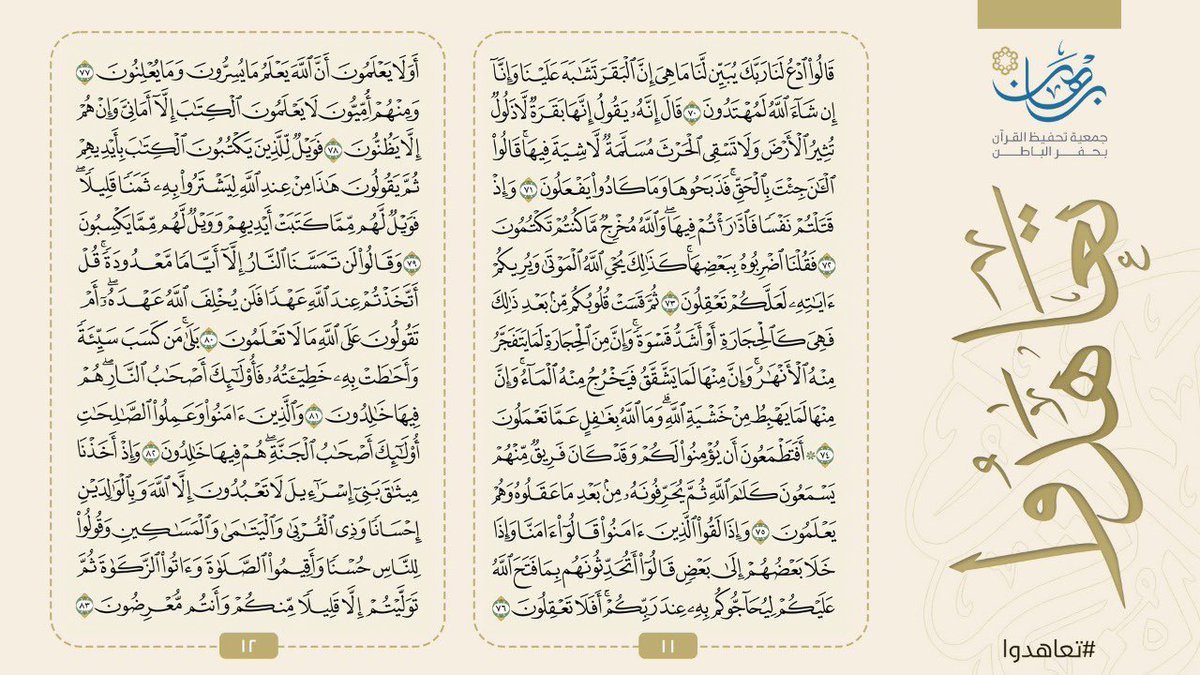 برهان
جمعية تحفيظ القرآن
بحفر الباطن
تعاهدوا
#تعاهدوا
قَالُوا۟ ٱدْعُ لَنَا رَبَّكَ يُبَيِّن لَّنَا مَا هِىَ إِنَّ ٱلْبَقَرَ تَشَٰبَهَ عَلَيْنَا وَإِنَّآ
إِن شَآءَ ٱللَّهُ لَمُهْتَدُونَ ٧٠ قَالَ إِنَّهُۥ يَقُولُ إِنَّهَا بَقَرَةٌ لَّا ذَلُولٌ
تُثِيرُ ٱلْأَرْضَ وَلَا تَسْقِى ٱلْحَرْثَ مُسَلَّمَةٌ لَّا شِيَةَ فِيهَا ۚ قَالُوا۟
ٱلْـَٰٔنَ جِئْتَ بِٱلْحَقِّ ۚ فَذَبَحُوهَا وَمَا كَادُوا۟ يَفْعَلُونَ ٧١ وَإِذْ
قَتَلْتُمْ نَفْسًا فَٱدَّٰرَْٰٔتُمْ فِيهَا ۖ وَٱللَّهُ مُخْرِجٌ مَّا كُنتُمْ تَكْتُمُونَ
٧٢ فَقُلْنَا ٱضْرِبُوهُ بِبَعْضِهَا ۚ كَذَٰلِكَ يُحْىِ ٱللَّهُ ٱلْمَوْتَىٰ وَيُرِيكُمْ
ءَايَٰتِهِۦ لَعَلَّكُمْ تَعْقِلُونَ ٧٣ ثُمَّ قَسَتْ قُلُوبُكُم مِّنۢ بَعْدِ ذَٰلِكَ
فَهِىَ كَٱلْحِجَارَةِ أَوْ أَشَدُّ قَسْوَةً ۚ وَإِنَّ مِنَ ٱلْحِجَارَةِ لَمَا يَتَفَجَّرُ
مِنْهُ ٱلْأَنْهَٰرُ ۚ وَإِنَّ مِنْهَا لَمَا يَشَّقَّقُ فَيَخْرُجُ مِنْهُ ٱلْمَآءُ ۚ وَإِنَّ
مِنْهَا لَمَا يَهْبِطُ مِنْ خَشْيَةِ ٱللَّهِ ۗ وَمَا ٱللَّهُ بِغَٰفِلٍ عَمَّا تَعْمَلُونَ
٧٤ ۞ أَفَتَطْمَعُونَ أَن يُؤْمِنُوا۟ لَكُمْ وَقَدْ كَانَ فَرِيقٌ مِّنْهُمْ
يَسْمَعُونَ كَلَٰمَ ٱللَّهِ ثُمَّ يُحَرِّفُونَهُۥ مِنۢ بَعْدِ مَا عَقَلُوهُ وَهُمْ
يَعْلَمُونَ ٧٥ وَإِذَا لَقُوا۟ ٱلَّذِينَ ءَامَنُوا۟ قَالُوٓا۟ ءَامَنَّا وَإِذَا
خَلَا بَعْضُهُمْ إِلَىٰ بَعْضٍ قَالُوٓا۟ أَتُحَدِّثُونَهُم بِمَا فَتَحَ ٱللَّهُ
عَلَيْكُمْ لِيُحَآجُّوكُم بِهِۦ عِندَ رَبِّكُمْ ۚ أَفَلَا تَعْقِلُونَ ٧٦
١١
أَوَلَا يَعْلَمُونَ أَنَّ ٱللَّهَ يَعْلَمُ مَا يُسِرُّونَ وَمَا يُعْلِنُونَ ٧٧
وَمِنْهُمْ أُمِّيُّونَ لَا يَعْلَمُونَ ٱلْكِتَٰبَ إِلَّآ أَمَانِىَّ وَإِنْ هُمْ
إِلَّا يَظُنُّونَ ٧٨ فَوَيْلٌ لِّلَّذِينَ يَكْتُبُونَ ٱلْكِتَٰبَ بِأَيْدِيهِمْ
ثُمَّ يَقُولُونَ هَٰذَا مِنْ عِندِ ٱللَّهِ لِيَشْتَرُوا۟ بِهِۦ ثَمَنًا قَلِيلًا ۖ
فَوَيْلٌ لَّهُم مِّمَّا كَتَبَتْ أَيْدِيهِمْ وَوَيْلٌ لَّهُم مِّمَّا يَكْسِبُونَ
٧٩ وَقَالُوا۟ لَن تَمَسَّنَا ٱلنَّارُ إِلَّآ أَيَّامًا مَّعْدُودَةً ۚ قُلْ
أَتَّخَذْتُمْ عِندَ ٱللَّهِ عَهْدًا فَلَن يُخْلِفَ ٱللَّهُ عَهْدَهُۥٓ ۖ أَمْ
تَقُولُونَ عَلَى ٱللَّهِ مَا لَا تَعْلَمُونَ ٨٠ بَلَىٰ ۚ مَن كَسَبَ سَيِّئَةً
وَأَحَٰطَتْ بِهِۦ خَطِيٓـَٔتُهُۥ فَأُو۟لَٰٓئِكَ أَصْحَٰبُ ٱلنَّارِ ۖ هُمْ
فِيهَا خَٰلِدُونَ ٨١ وَٱلَّذِينَ ءَامَنُوا۟ وَعَمِلُوا۟ ٱلصَّٰلِحَٰتِ
أُو۟لَٰٓئِكَ أَصْحَٰبُ ٱلْجَنَّةِ ۖ هُمْ فِيهَا خَٰلِدُونَ ٨٢ وَإِذْ أَخَذْنَا
مِيثَٰقَ بَنِىٓ إِسْرَٰٓءِيلَ لَا تَعْبُدُونَ إِلَّا ٱللَّهَ وَبِٱلْوَٰلِدَيْنِ
إِحْسَانًا وَذِى ٱلْقُرْبَىٰ وَٱلْيَتَٰمَىٰ وَٱلْمَسَٰكِينِ وَقُولُوا۟
لِلنَّاسِ حُسْنًا وَأَقِيمُوا۟ ٱلصَّلَوٰةَ وَءَاتُوا۟ ٱلزَّكَوٰةَ ثُمَّ
تَوَلَّيْتُمْ إِلَّا قَلِيلًا مِّنكُمْ وَأَنتُم مُّعْرِضُونَ ٨٣
١٢